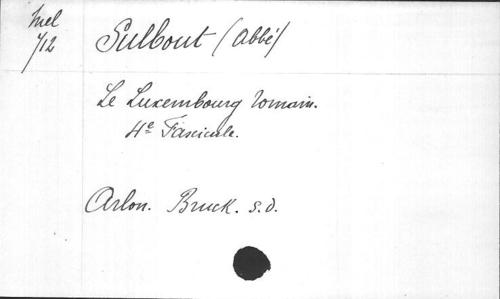 Mel
712
Sulbout (Abbé)
Le Luxembourg romain.
4e Fascicule.
Arlon. Bruck. s.d.